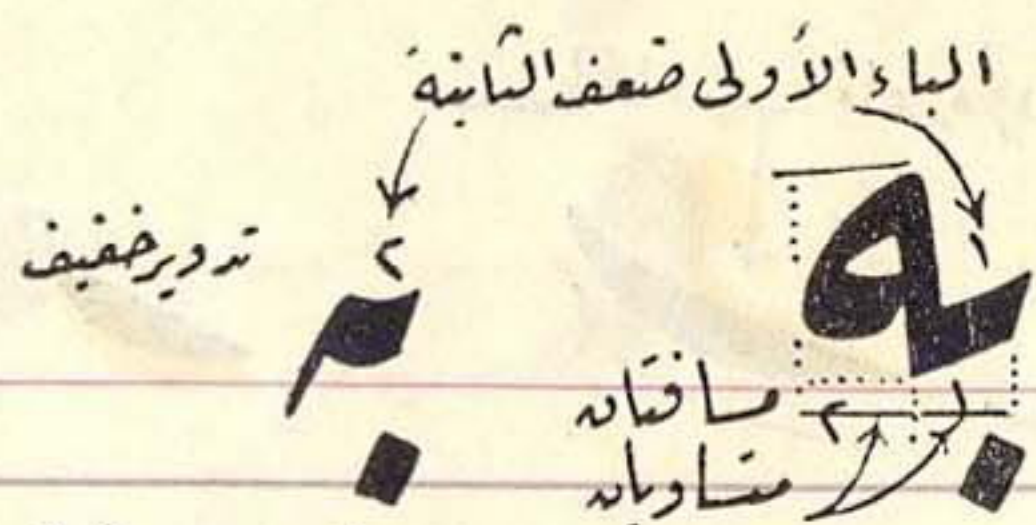 الباء الأولى ضعف الثانية
١ ٢
به بم تدوير خفيف
١ ٢ مسافتان
متساويان